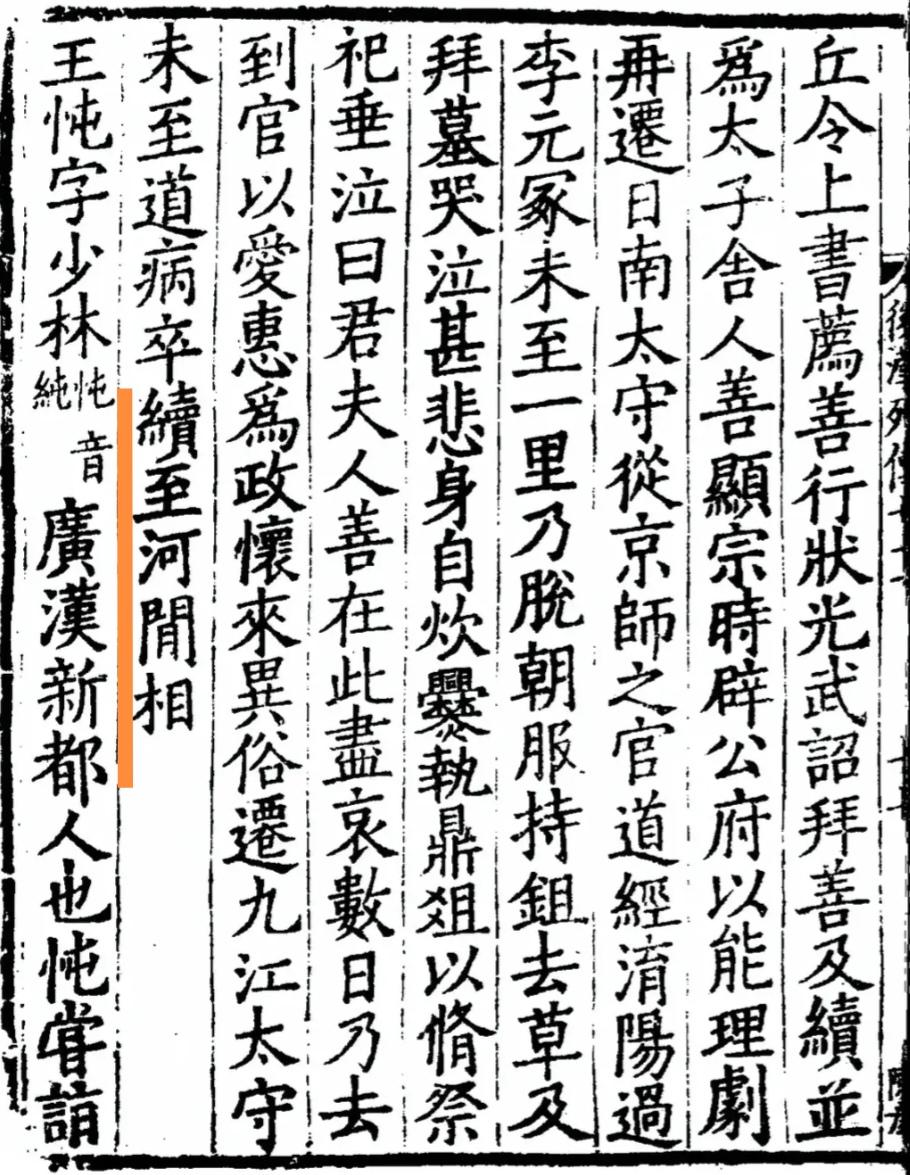 丘令上書薦善行狀光武詔拜善及續並
爲太子舍人善顯宗時辟公府以能理劇
再遷日南太守從京師之官道經淯陽過
李元冢未至一里乃脫朝服持鉏去草及
拜墓哭泣甚悲身自炊爨執鼎俎以脩祭
祀垂泣曰君夫人善在此盡哀數日乃去
到官以愛惠爲政懷來異俗遷九江太守
未至道病卒續至河閒相
王忳字少林忳音純廣漢新都人也忳嘗詣